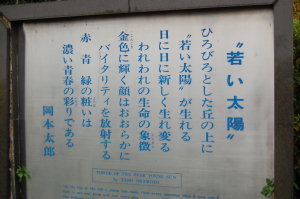 〝若い太陽〟
ひろびろとした丘の上に
〝若い太陽〟が生れる
日に日に新しく生れ変る
われわれの生命の象徴
金色に輝く顔はおおらかに
バイタリティを放射する
赤 青 緑の粧いは
濃い青春の彩りである
岡本太郎
TOWER OF THE EVER YOUNG SUN
by TARO OKAMOTO